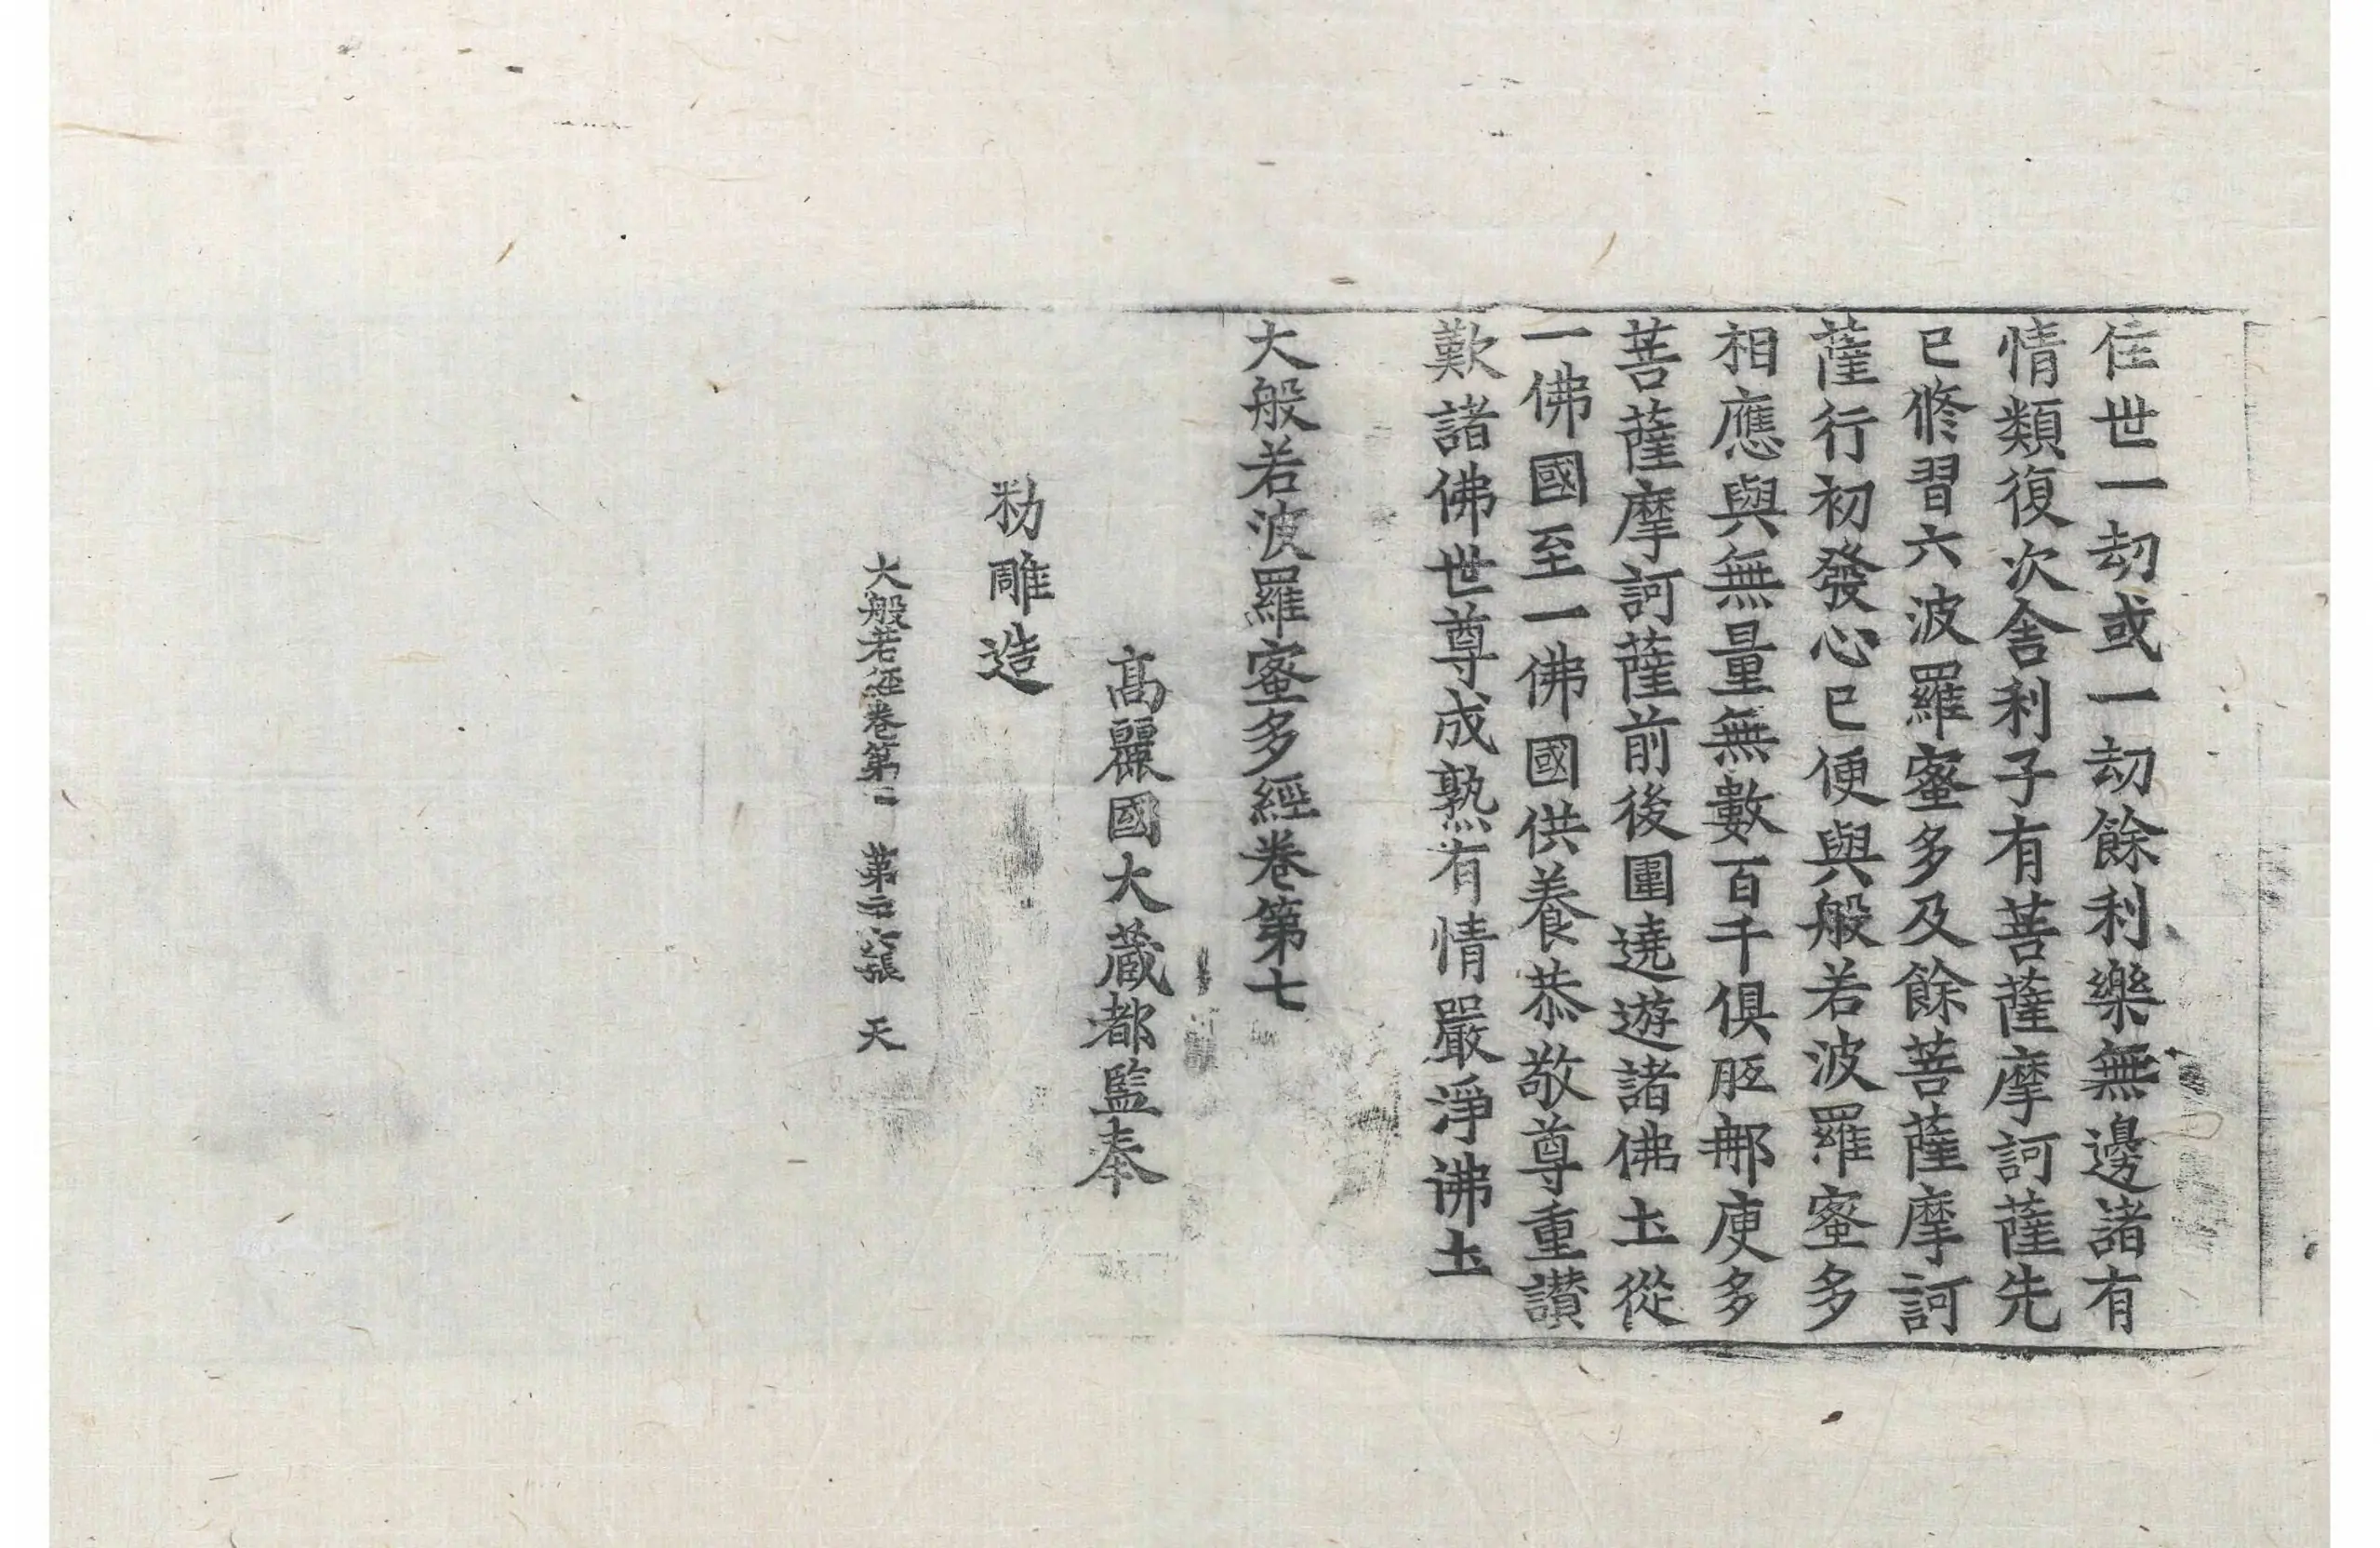 住世一劫或一劫餘利樂無邊諸有
情類復次舎利子有菩薩摩訶薩先
已修習六波羅蜜多及餘菩薩摩訶
薩行初發心已便與般若波羅蜜多
相應與無量無數百千俱胝那庾多
菩薩摩訶薩前後圍遶遊諸佛土從
一佛國至一佛國供養恭敬尊重讃
歎諸佛世尊成熟有情嚴淨佛土
大般若波羅蜜多經卷第七
高麗國大藏都監奉
勑雕造
大般若經卷第 第 張 天